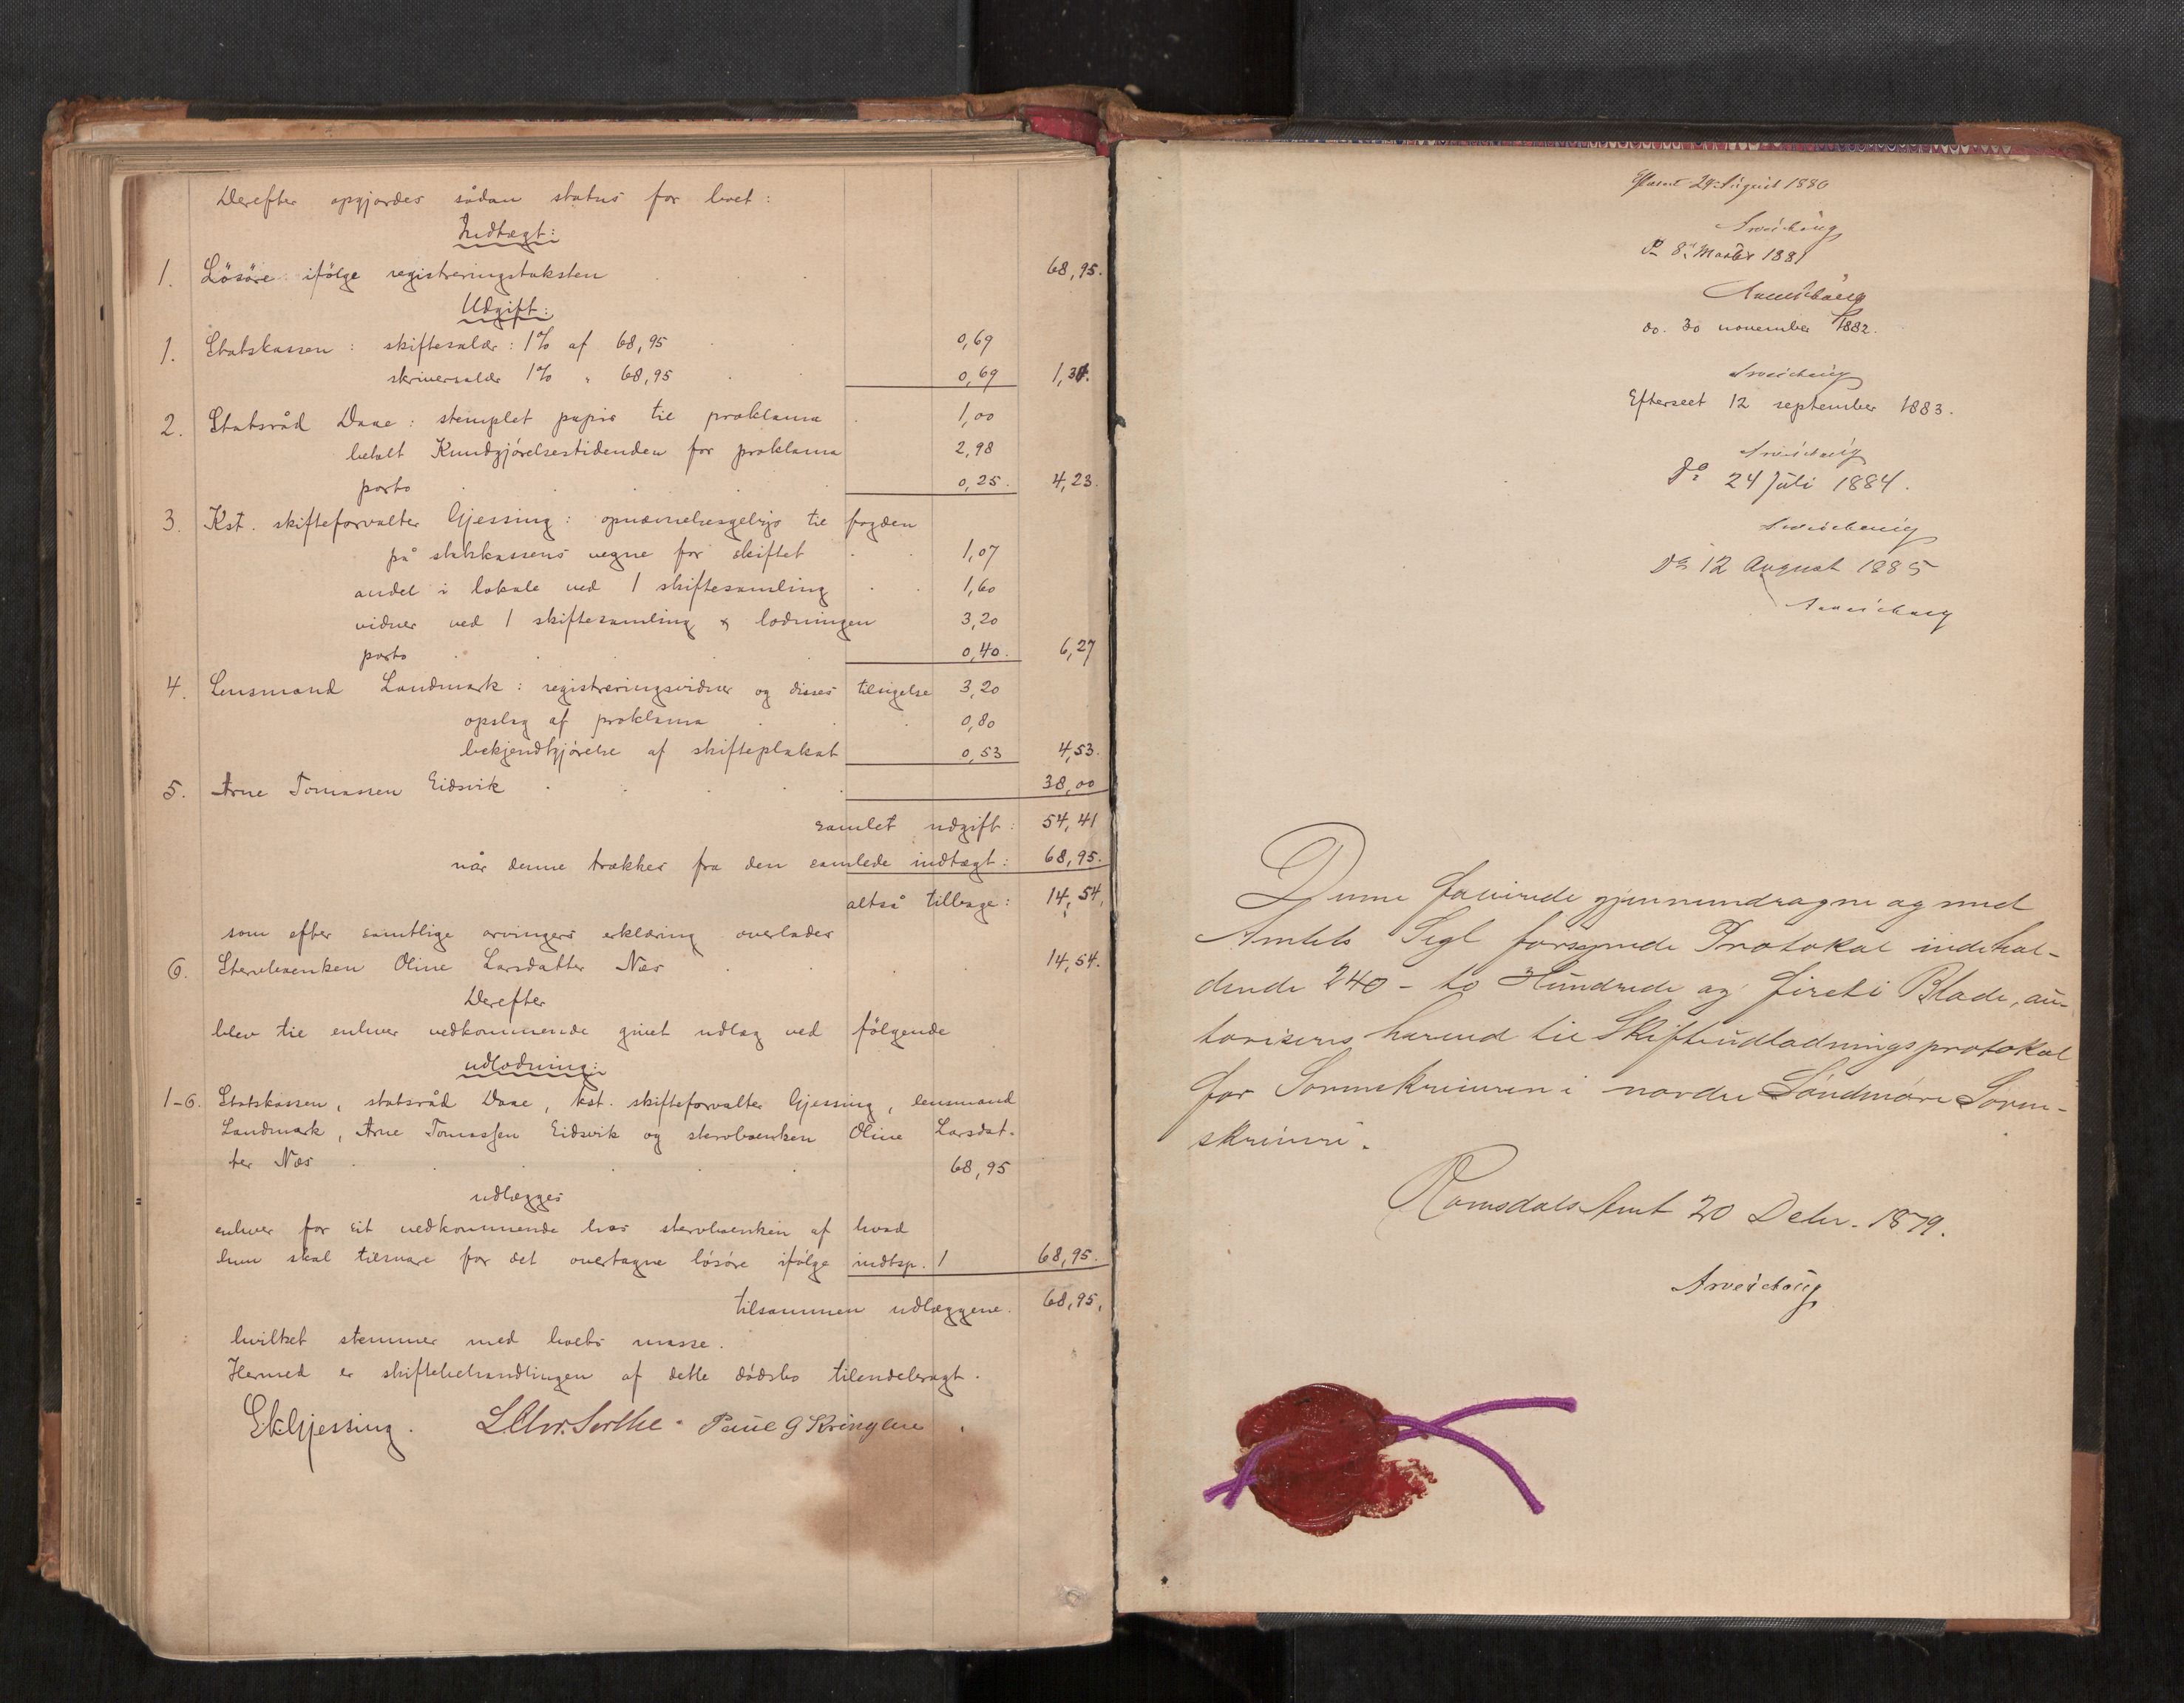 Derefter opgjordes sådan status for boet:
Indtægt:
1. Lösöre ifölge registreringstaksten . . 68,95.
Udgift:
1. Statskassen: skiftesalær: 1% af 68,95 . . 0,69
skriversalær 1% " 68,95 . 0,69 1,38.
2. Statsråd Daae: stemplet papir til proklama . 1,00
betalt Kundgjörelsestidenden for proklama 2,98
porto . . . . 0,25. 4,23.
3. Kst. skifteforvalter Gjessing: opnævnelsesgebyr til fogden
på statskassens vegne for skiftet . . 1,07
andel i lokale ved 1 skiftesamling . . 1,60
vidner ved 1 skiftesamling & lodningen 3,20
porto . . . . 0,40. 6,27
4. Lensmand Landmark: registreringsvidner og disses tilsigelse 3,20
opslag af proklama . . 0,80
bekjendtgjörelse af skifteplakat 0,53 4,53.
5. Arne Tomassen Eidsvik . . . . . 38,00
samlet udgift: 54,41
når denne trækkes fra den samlede indtægt: 68,95.
altså tilbage: 14,54.
som efter samtlige arvingers erklæring overlades
6. Stervboenken Oline Larsdatter Næs . . . 14,54.
Derefter
blev til enhver vedkommende givet udlæg ved fölgende
udlodning:
1-6. Statskassen, statsråd Daae, kst. skifteforvalter Gjessing, lensmand
Landmark, Arne Tomassen Eidsvik og stervboenken Oline Larsdat-
ter Næs . . . . . 68,95
udlægges
enhver for sit vedkommende hos stervboenken af hvad
hun skal tilsvare for det overtagne lösöre ifölge indtsp. 1 68,95.
tilsammen udlæggene. 68,95.
hvilket stemmer med boets masse.
Hermed er skiftebehandlingen af dette dödsbo tilendebragt.
EkGjessing. L Chr. Sorthe. Paul G Kringlen
29 August 1880
8 1881
do. 30 november 1882.
Efterseet 12 september 1883.
Do 24 Juli 1884.
Do 12 August 1885
Denne foliirede gjennemdragne og med
Amtets Segl forsynede Protokol indehol-
dende 240 - to Hundrede og fireti Blade, au-
toriseres herved til Skifteudlodningsprotokol
for Sorenskriveren i nordre Söndmöre Soren-
skriveri.
Romsdals Amt 20 Decbr. 1879.